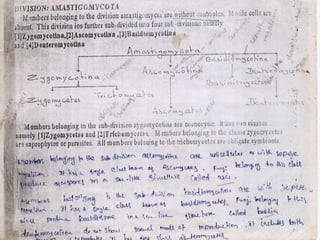 DIVISION: AMASTIGOMYCOTA
Members belonging to the division amastigmycota are without centrioles. Motile cells are
absent. This division ios further sub-divided into four sub divisions namely
[1]Zygomycotina,[2]Ascomycotina ,[3]Basidiomycotina
and [4]Deuteromycotina
Amastigomycota
Basidiomycotina
Zygomycotina Ascomycotina Deuteromycotina
Zygomycetes Trichomycetes
Ascomycetes
Members belonging to the sub-division zygomycotina are coenocytic. It has two classes
namely [1]Zygomycetes and [2]Trichomycetes. Members belonging to the classe zygomycetes
are saprophytes or parasites. All members belonging to the trichomycetes are obligate symbionts.
Members belonging to the sub division ascomycotina are unicellular or with septate
mycelium. It has a single class known as Ascomycetes. Fungi belonging to this class
produce ascospores in a sac like structure called ascus.
Members belonging to the sub-division basidiomycotina are with septate
mycelium. It has a single class known as basidiomycetes. Fungi belonging to this
class produce basidiospore in a structure called basidia
deuteromycotina do not show sexual mode of reproduction. it includes both